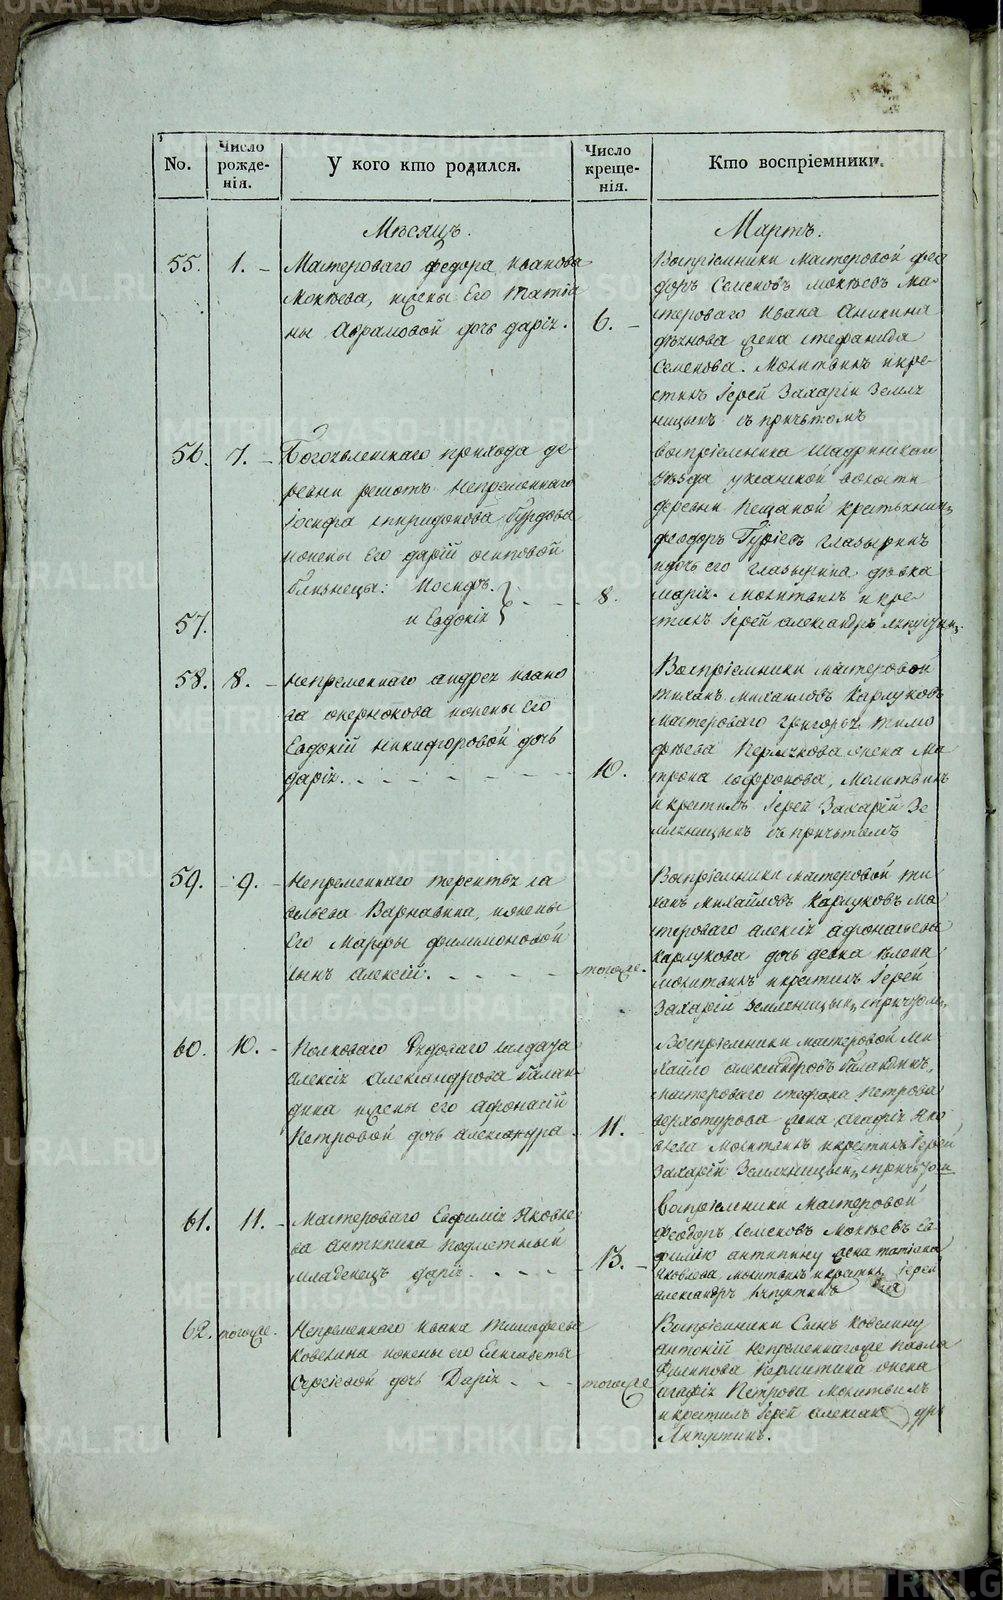 No.
Число рожде-нія.
У кого кто родился.
Число креще-нія.
Кто воспріемники.
Мѣсяцъ.
Мартъ.
55.
1.
Мастероваго Федора Иванова
Мокѣева, и жены Его Татіа
ны Аврамовой дочь Дарія.
6.
Воспріемники мастеровой Фео
доръ Семеновъ Мокѣевъ Ма-
стероваго Ивана Аникина
жена Стефанида
Семенова. Молитвилъ и кре-
стилъ Іерей Захарій Земля
ницынъ съ причьтомъ
56.
7.
Богоявленскаго прихода де-
ревни Решотъ Непременнаго
Іосифа Спиридонова Бурдова
и жены Его Дарій Осиповой
близнецы: Иосифъ.
57.
и Евдокія
8.
воспріемника Шадринскаго
уѣзда Уксянской волости
деревни Пещаной крестьянинъ
Феодоръ Гуріевъ Глазыринъ
и дочь его Глазырина дѣвка
Марія. Молитвилъ и кре-
стилъ Іерей Александръ Ляпустинъ
58.
8.
Непременнаго Андрея Ивано
ва и жены его
Евдокій Никифоровой дочь
Дарія.
10.
Воспріемники мастеровой
Тиханъ Михаиловъ Карлуковъ
Мастероваго Григорья Тимо
фѣева Пермякова жена Ма
трона Софронова, Молитвилъ
и крестилъ Іерей Захарій Зе
мляницынъ съ причьтомъ
59.
9.
Непременнаго Терентья Са
вельева Варнавина, и жены
Его Марфы Филимоновой
сынъ Алексій.
тогоже.
Воспріемники мастеровой Ти
ханъ Михайловъ Карлуковъ Ма
стероваго Алексія Афонасьева
Карлукова дочь девка Елена
Молитвилъ и крестилъ Іерей
Захарій Земляницынъ съ причтом
60.
10.
Полковаго Рядоваго солдата
Алексія Александрова Балан
дина и жены его Афонасій
Петровой дочь Александра
11.
Воспріемники мастеровой Ми
хайло Александровъ Баландинъ,
мастероваго Стефана Петрова
Верхотурова жена Агафія Яко
влева Молитвилъ и крестилъ Іерей
Захарій Земляницынъ съ причтом
61.
11.
Мастероваго Евфимія Яковле
ва Антипина подметный
младенецъ Дарія
13.
Воспріемники Мастеровой
Феодоръ Семеновъ Мокѣевъ Ев
фимію Антипину жена Татіана
Яковлева молитвилъ и крестилъ Іерей
Александръ Ляпустинъ
62.
тогоже.
Непременнаго Ивана Тимофеева
Ковелина и жены его Елисаветы
Сергіевой дочь Дарія
тогоже
Воспріемники Сынъ Ковелину
Антоній Непременнагоже Павла
Филипова жена
Агафія Петрова Молитвилъ
и крестилъ Іерей Александръ
Ляпустинъ.
METRIKI.GASO-URAL.RU